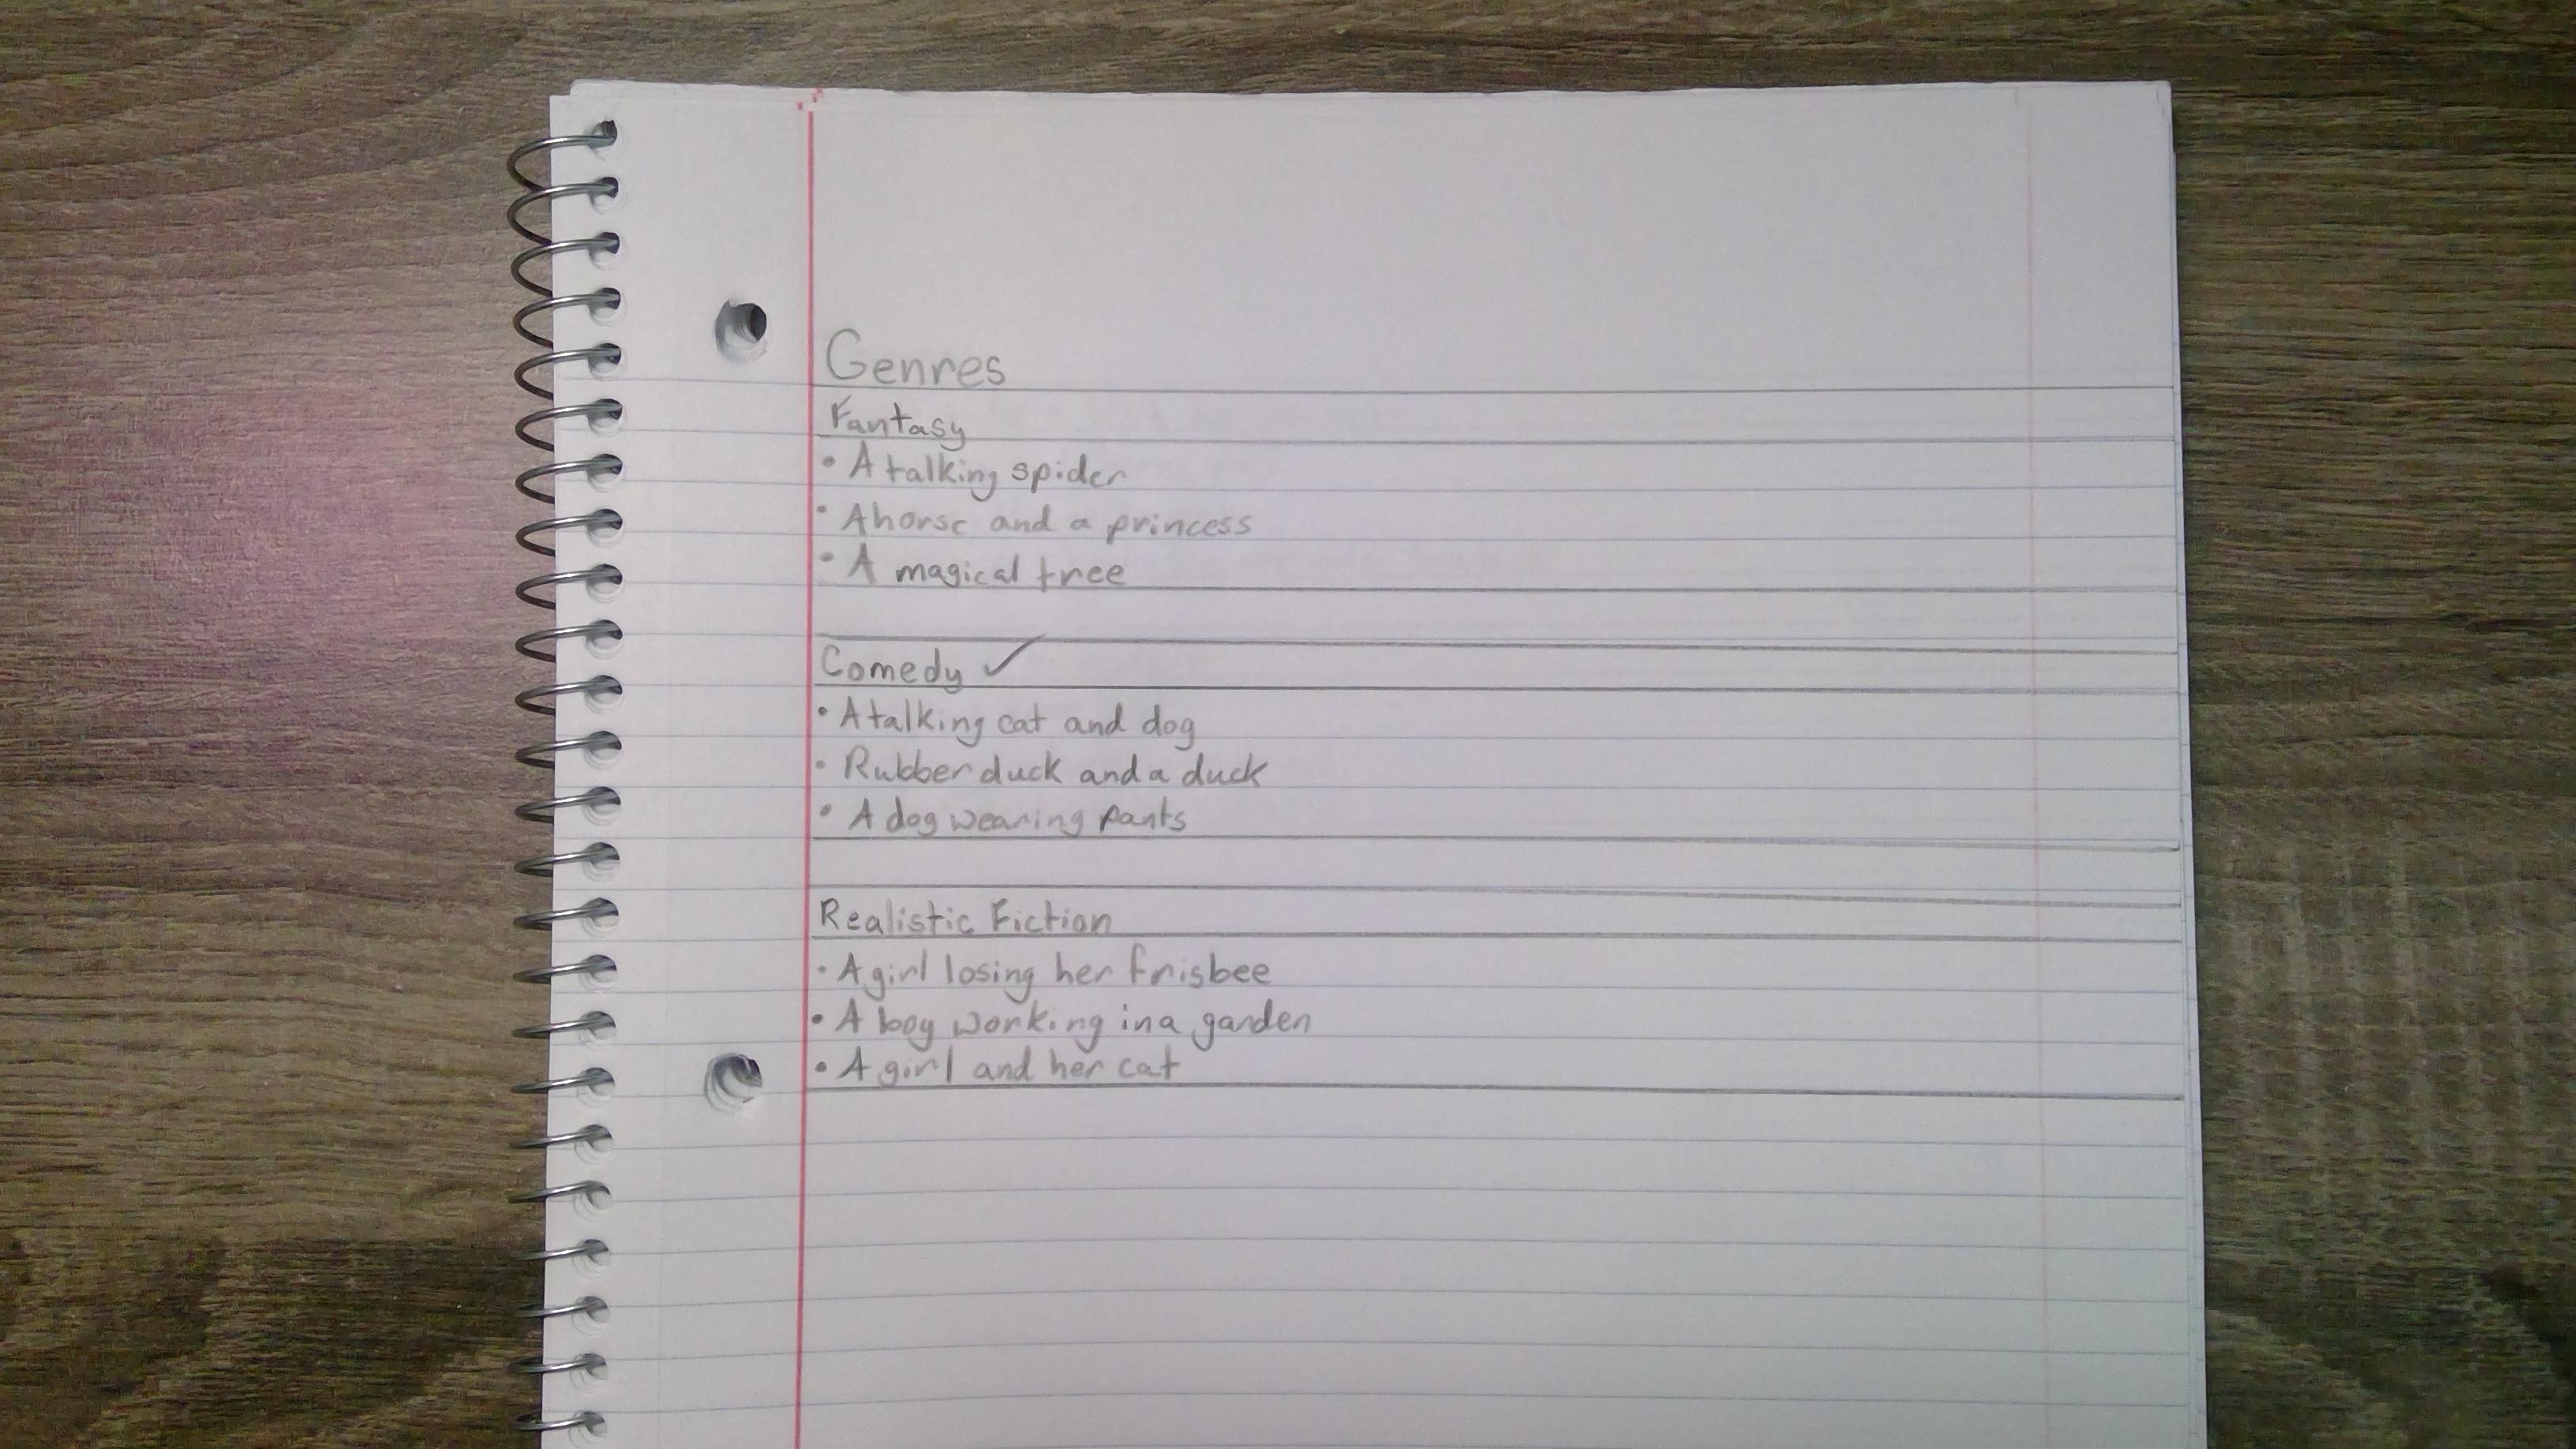 Genres
Fantasy
• A talking spider
• A horse and a princess
• A magical tree
Comedy ✓
• A talking cat and dog
• Rubber duck and a duck
• A dog wearing pants
Realistic Fiction
• A girl losing her frisbee
• A boy working in a garden
• A girl and her cat